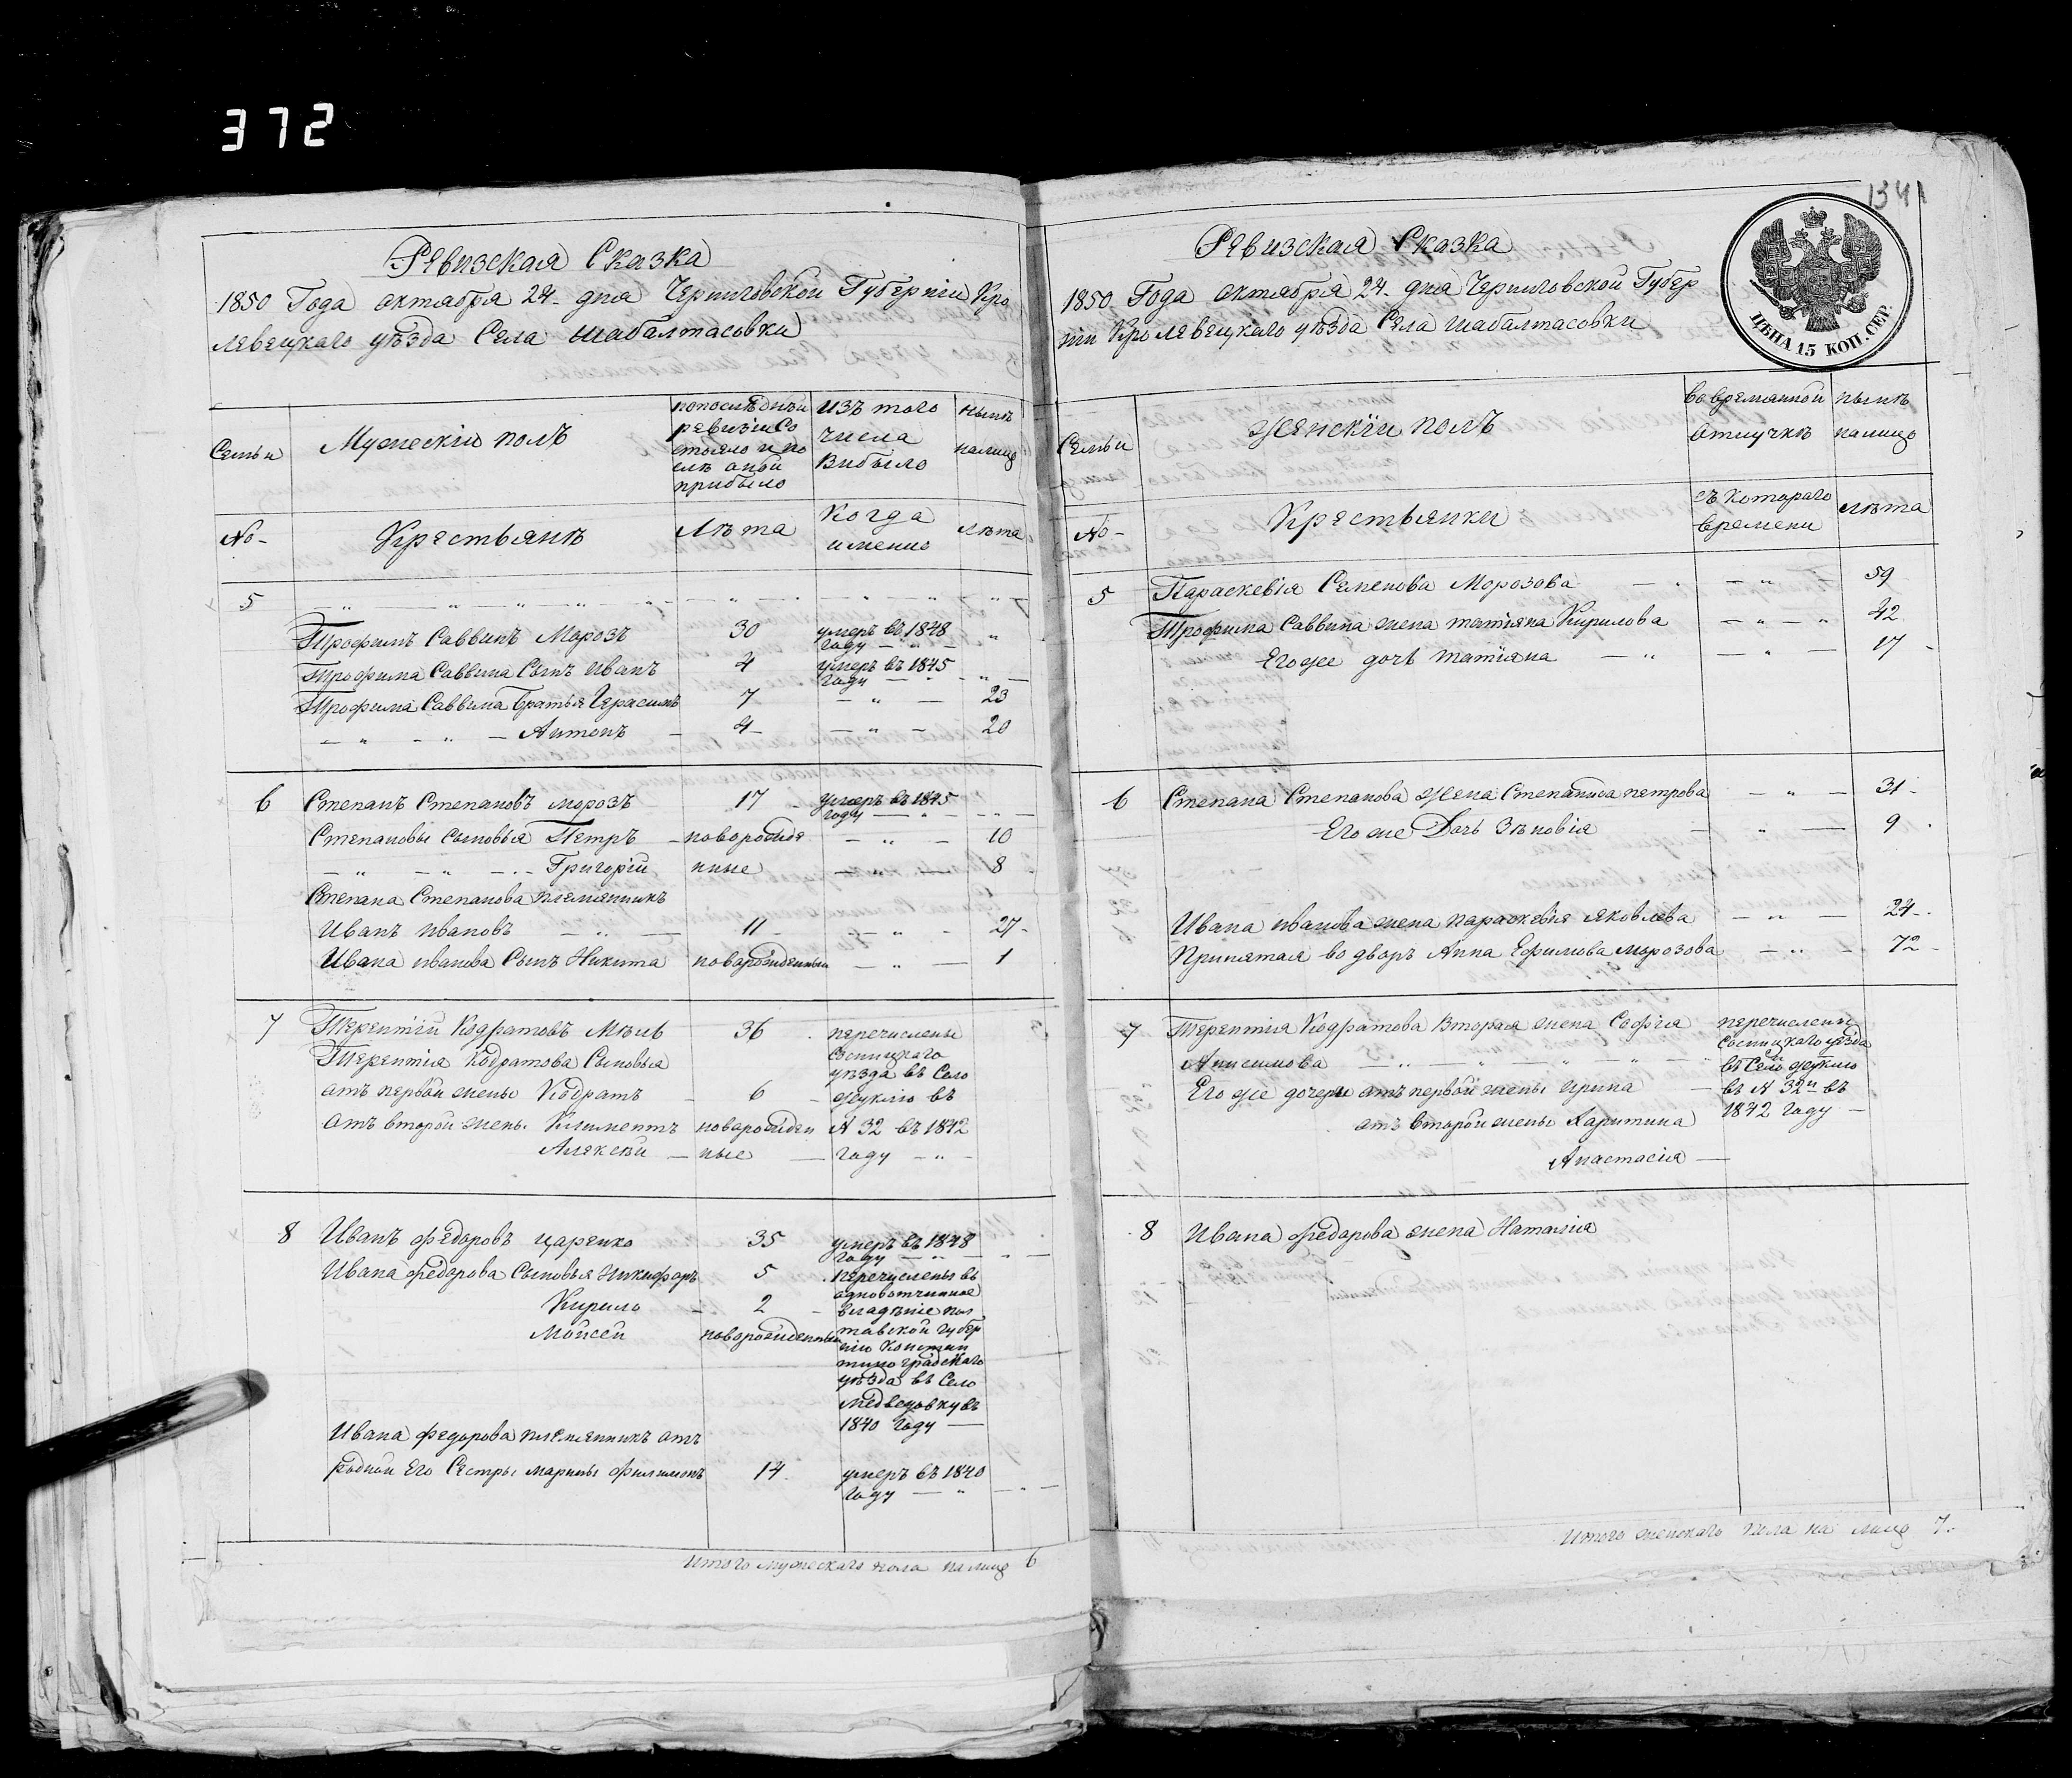 372
Ревизская Сказка
1850 Года октября 24. дня Черниговской Губернии Кро
левецкаго уѣзда Села Шабалтасовки
Семьи
Мужескій полъ
попослѣднѣй
ревизіи со
стояло и по
слѣ оной
прибыло
изъ того
числа
выбыло
нынѣ
налицо
№
Крестьянѣ
Лѣта
Когда
именно
лѣта
5
Трофимъ Саввинъ Морозъ 30 умеръ въ 1848
году
Трофима Саввина Сынъ Иванъ 4 умеръ въ 1845
году
Трофима Саввина Братья Герасимъ 7 23
Антонъ 4 20
6 Степанъ Степановъ морозъ 17 умеръ въ 1845
году
Степановы сыновья Петръ новорожде 10
Григорій нные 8
Степана Степанова племянникъ
Иванъ ивановъ 11 27
Ивана иванова Сынъ Никита новорожденный 1
7 Терентій Кодратовъ Мѣль 36 перечислены
Сосницкаго
Терентія Кодратова Сыновья
уѣзда въ Село
отъ первой жены Кодратъ 6 жуклю въ
отъ второй жены Климентъ новорожден № 32 въ 1842
Алексѣй ные году
8 Иванъ федоровъ царенко 35 умеръ въ 1848
году
Ивана федорова Сыновья Никифоръ 5 перечислены въ
одновотчинное
Кирило 2 владѣніе пол
Мойсей новорожденный тавской губер
нію Констан
тино градскаго
уѣзда въ Село
медведовку въ
1840 году
Ивана федорова племянникъ отъ
родной Его Сестры марины филимонъ 14 умеръ въ 1840
году
Итого мужескаго пола налицо 6
134
Ревизская Сказка
1850 Года октября 24. дня Черниговской Губер
ніи Кролевецкаго уѣзда Села шабалтасовки
ЦѢНА 15 КОП. СЕР.
Семьи
Женскій полъ
во временной
отлучкѣ
нынѣ
налицо
№
Крестьянки
съ котораго
времени
лѣта
5 Параскевія Семенова Морозова 59
Трофима Саввина жена татіяна Кирилова 42
Егоже дочь татіяна 17
6 Степана Степанова жена Степанида петрова 31
Егоже Дочь Зѣновія 9
Ивана иванова жена параскевія яковлева 24
Принятая во дворъ Анна Ефимова морозова 72
7 Терентія Кодратова Вторая жена Софія перечислены
Сосницкаго уѣзда
Анисимова въ Село жуклю
Его же дочери отъ первой жены ирина въ № 32й въ
1842 году
отъ второй жены Харитина
Анастасія
8 Ивана федорова жена Наталія
Итого женскаго пола на лицо 7.